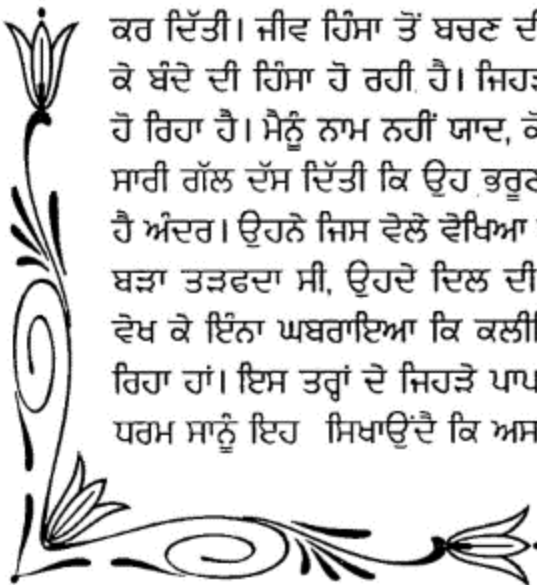 ਕਰ ਦਿੱਤੀ। ਜੀਵ ਹਿੰਸਾ ਤੋਂ ਬਚਣ ਦੀ
ਕੇ ਬੰਦੇ ਦੀ ਹਿੰਸਾ ਹੋ ਰਹੀ ਹੈ। ਜਿਹੜ
ਹੋ ਰਿਹਾ ਹੈ। ਮੈਨੂੰ ਨਾਮ ਨਹੀਂ ਯਾਦ,
ਸਾਰੀ ਗੱਲ ਦੱਸ ਦਿੱਤੀ ਕਿ ਉਹ ਭਰੂਣ
ਹੈ ਅੰਦਰ। ਉਹਨੇ ਜਿਸ ਵੇਲੇ ਵੇਖਿਆ
ਬੜਾ ਤੜਫਦਾ ਸੀ, ਉਹਦੇ ਦਿਲ ਦੀ
ਵੇਖ ਕੇ ਇੰਨਾ ਘਬਰਾਇਆ ਕਿ
ਰਿਹਾ ਹਾਂ। ਇਸ ਤਰ੍ਹਾਂ ਦੇ ਜਿਹੜੇ ਪਾਪ
ਧਰਮ ਸਾਨੂੰ ਇਹ ਸਿਖਾਉਂਦੈ ਕਿ ਅਸ